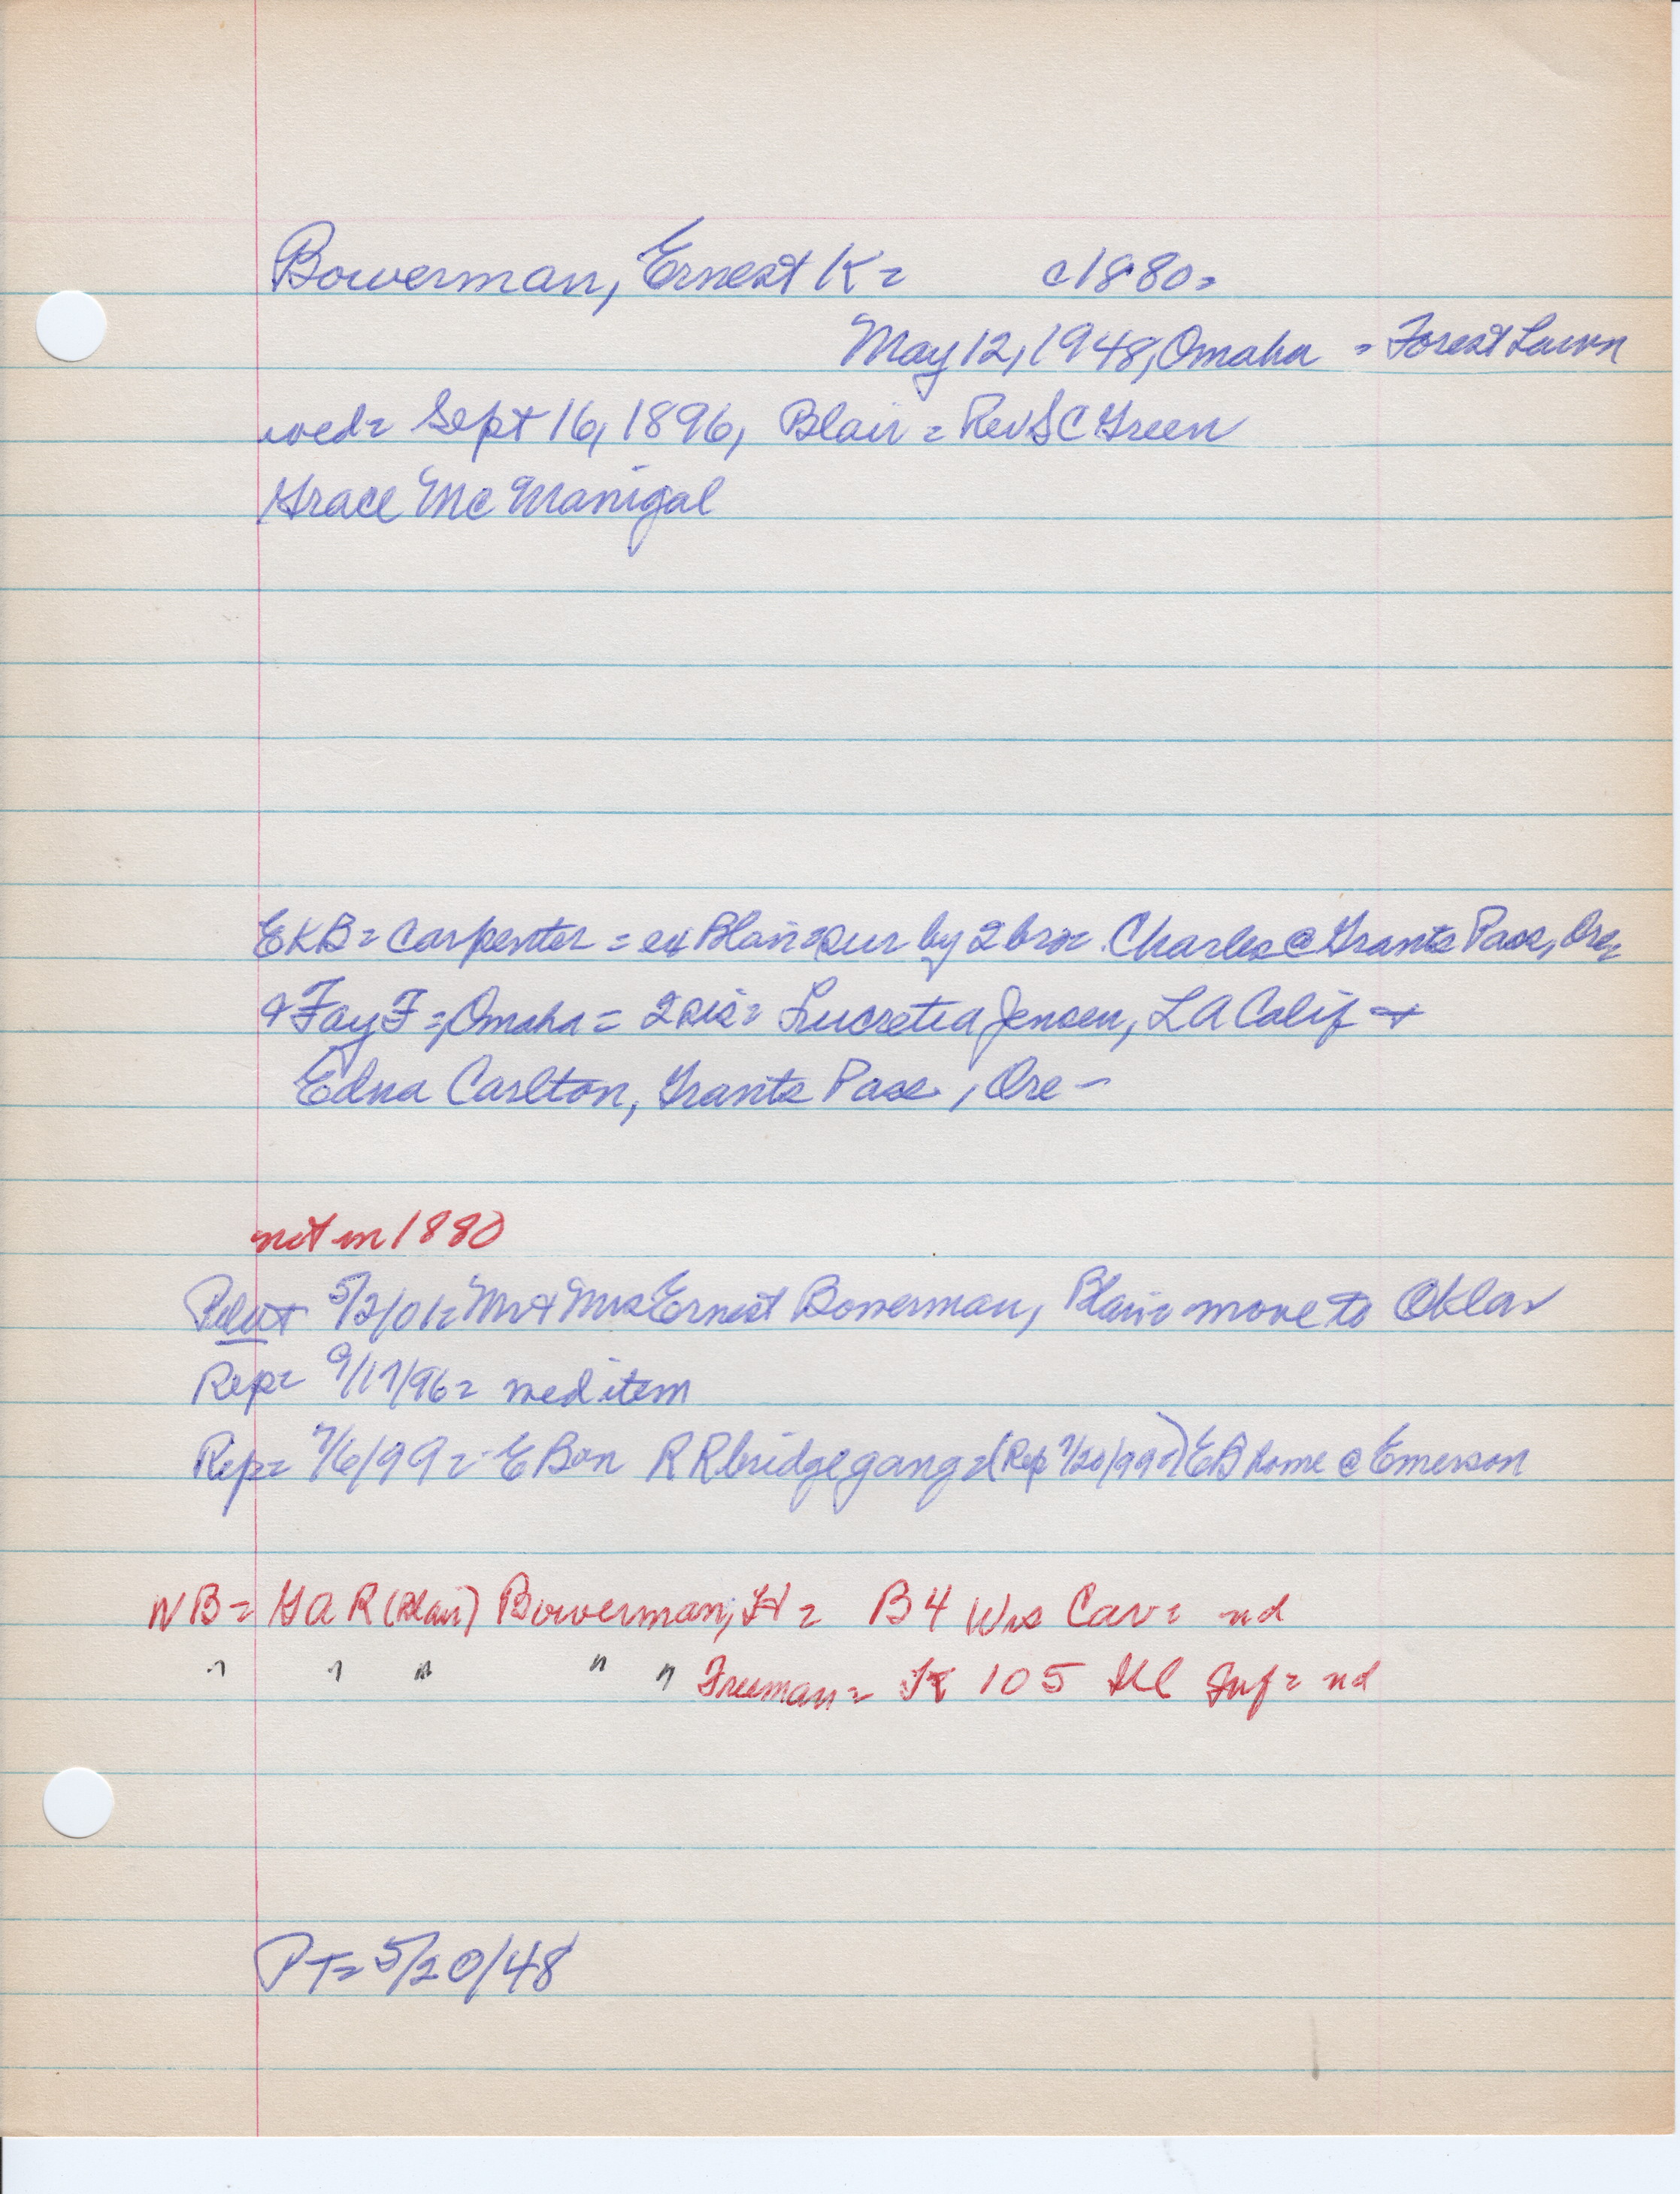 Bowerman, Ernest K = c1880 =
May 12, 1948, Omaha = Forest Lawn
wed = Sept 16, 1896, Blair = Rev S C Green
Grace Mc Manigal
EKB = carpenter = ex Blair = sur by 2 bro = Charles @ Grants Pass, Ore =
& Fay F =, Omaha = 2 sis = Lucretia Jensen, LA Calif +
Edna Carlton, Grants Pass, Ore -
not in 1880
5/2/01 = Mr & Mrs Ernest Bowerman, Blair = move to Okla
Rep = 9/17/96 = wed item
Rep = 7/6/99 = E B on RR bridge gang = (Rep 7/20/99 =) EB home @ Emerson
NB = GAR (Blair) Bowerman, H = B 4 Wis Cav = nd
" " " " " Freeman = K 105 Ill Inf = nd
PT = 5/20/48